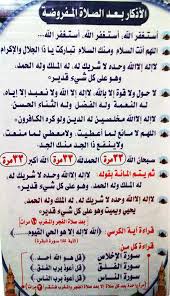 الأذكار بعد الصلاة المفروضة
أستغفر الله، أستغفر الله، أستغفر الله...
اللهم أنت السلام ومنك السلام تباركت يا ذا الجلال والإكرام
لا إله إلا الله وحده لا شريك له، له الملك وله الحمد،
وهو على كل شيء قدير
لا حول ولا قوة إلا بالله، لا إله إلا الله ولا نعبد إلا إياه،
له النعمة وله الفضل وله الثناء الحسن
لا إله إلا الله مخلصين له الدين ولو كره الكافرون
اللهم لا مانع لما أعطيت، ولا معطي لما منعت،
ولا ينفع ذا الجد منك الجد
سبحان الله ٣٣ مرة الحمد لله ٣٣ مرة الله أكبر ٣٣ مرة
ثم يتم المائة بقوله لا إله إلا الله وحده لا شريك له،
له الملك وله الحمد، وهو على كل شيء قدير
لا إله إلا الله وحده لا شريك له، له الملك وله الحمد،
يحيي ويميت وهو على كل شيء قدير
قراءة آية الكرسي الله لا إله إلا هو الحي القيوم...
قراءة كل من
سورة الإخلاص قل هو الله أحد
سورة الفلق قل أعوذ برب الفلق
سورة الناس قل أعوذ برب الناس